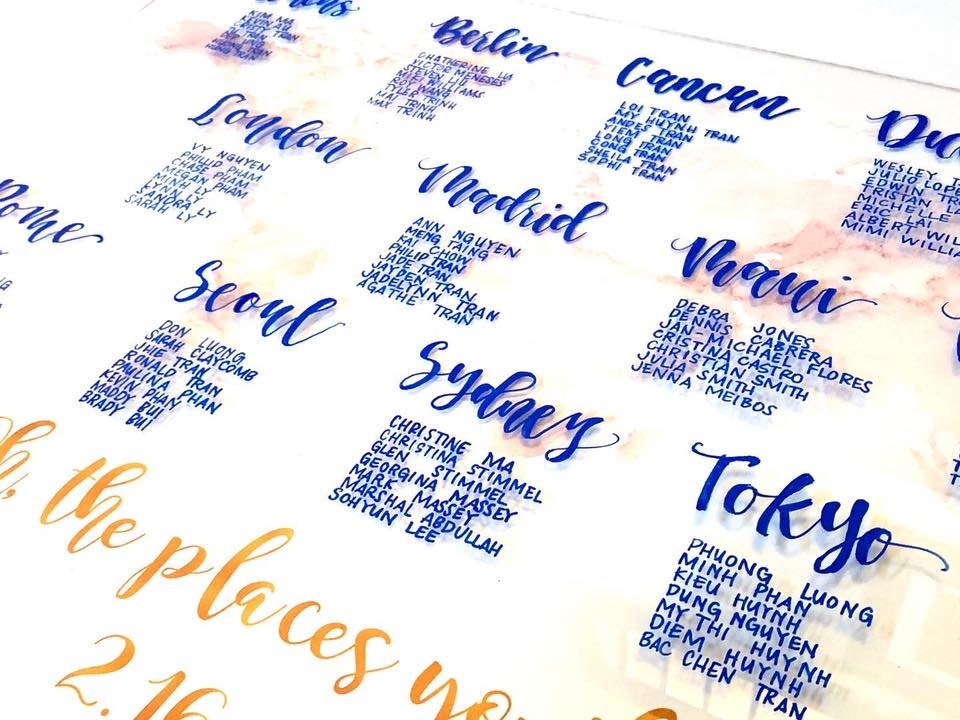 KIM MA
Berlin
CHATHERINE LU
VICTOR MENESES
STEVEN LIU
MIE WILLIAMS
ROY WANG
TYLER TRINH
MAI TRINH
MAX TRINH
Cancun
LOI TRAN
MY HUYNH TRAN
ANDES TRAN
YIEM TRAN
LONG TRAN
CONG TRAN
SHEILA TRAN
SOPHI TRAN
WESLEY
JULIO
EDWIN
TRISTAN
MICHELLE
ERIC LAI
ALBERT
MIMI
London
VY NGUYEN
PHILLIP PHAM
CHASE PHAM
MEGAN PHAM
MINH LY
LYNN LY
SANDRA LY
SARAH LY
Madrid
ANN NGUYEN
MENG TAING
KAI CHOW
PHILIP TRAN
JADE TRAN
JAYDEN TRAN
JADELYNN TRAN
AGATHE TRAN
Maui
DEBRA JONES
DENNIS CABRERA
JAN-MICHAEL FLORES
CRISTINA CASTRO
CHRISTIAN SMITH
JULIA SMITH
JENNA MEIBOS
Rome
Seoul
DON LUONG
SARAH CLAYCOMB
JHIE TRAN
RONALD TRAN
PAULINA PHAN
KEVIN PHAN
MADDY BUI
BRADY BUI
Sydney
CHRISTINE MA
CHRISTINA STIMMEL
GLEN STIMMEL
GEORGINA MASSEY
MARK MASSEY
MARSHAL ABDULLAH
SOHYUN LEE
Tokyo
PHUONG LUONG
MINH PHAN
KIEU HUYNH
DUNG NGUYEN
MY THI HUYNH
DIEM HUYNH
BAC CHEN TRAN
the places
2.16